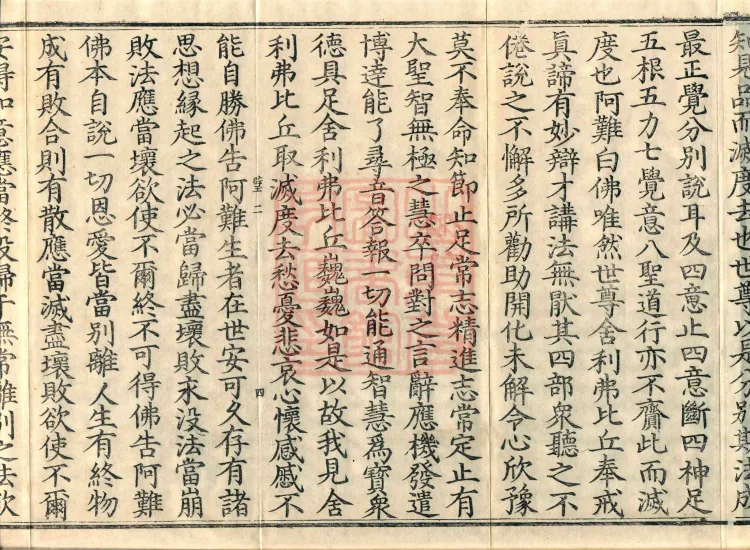 知見品而滅度去也世尊以是分別其法成
最正覺分別說耳及四意止四意斷四神足
五根五力七覺意八聖道行亦不齎此而滅
度也阿難曰佛唯然世尊舍利弗比丘奉戒
眞諦有妙辯才講法無猒其四部衆聽之不
倦說之不懈多所勸助開化未解令心欣豫
莫不奉命知節止足常志精進志常定止有
大聖智無極之慧卒問對之言辭應機發遣
博達能了尋音答報一切能通智慧爲寶衆
德具足舍利弗比丘巍巍如是以故我見舍
利弗比丘取滅度去愁憂悲哀心懷慼慼不
二 四
能自勝佛告阿難生者在世安可久存有諸
思想緣起之法必當歸盡壞敗永没法當崩
敗法應當壞欲使不爾終不可得佛告阿難
佛本自說一切恩愛皆當別離人生有終物
成有敗合則有散應當滅盡壞敗欲使不爾
安得如意應當終没歸于無常離別之法欲